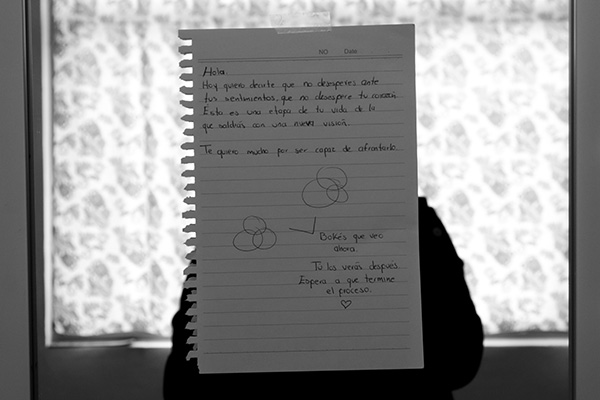 NO Date
Hola.
Hoy quiero decirte que no desesperes ante
tus sentimientos, que no desespere tu corazón
Esto es una etapa de tu vida de la
que saldrás con una nueva visión.
Te quiero mucho por ser capaz de afrontarlo.
Bokés que veo
ahora.
Tú los verás después.
Espera a que termine
el proceso.